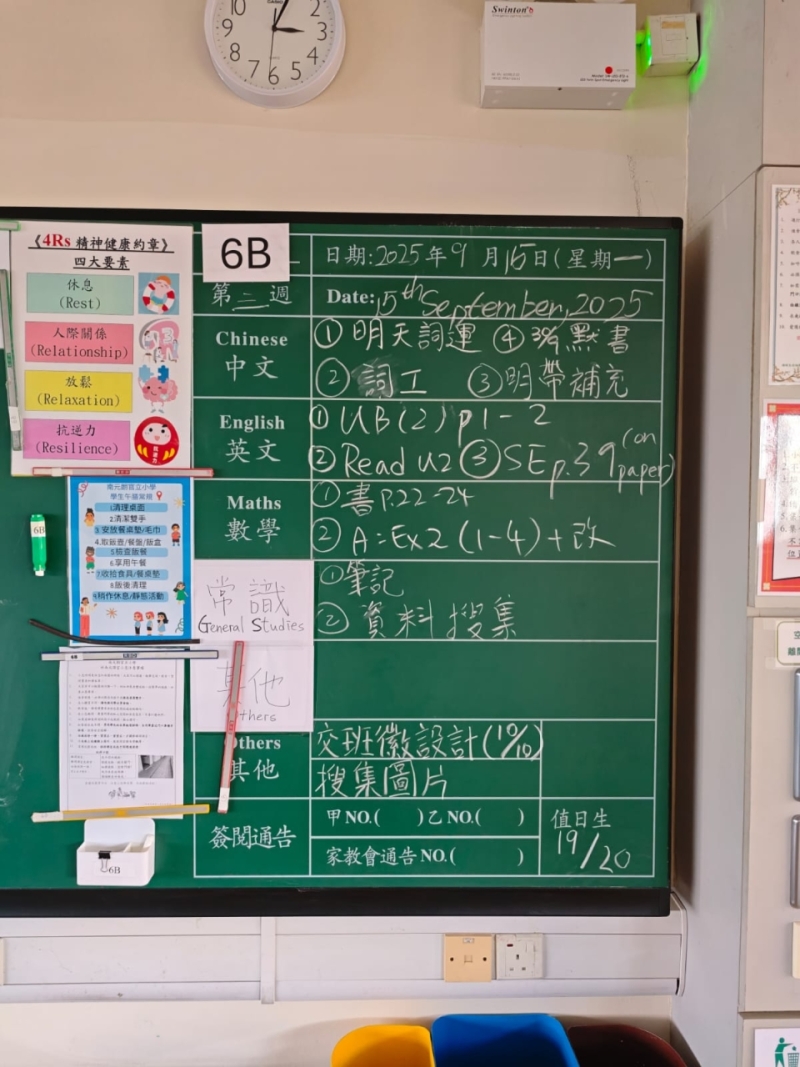 10
2
3
9
4
8
7
6
5
Swinton
《4Rs 精神健康約章》
四大要素
休息
(Rest)
人際關係
(Relationship)
放鬆
(Relaxation)
抗逆力
(Resilience)
南元朗官立小學
學生午膳常規
1.清理桌面
2.清潔雙手
3.安放餐桌墊/毛巾
4.取飯壺/餐盤/飯盒
5.檢查飯餐
6.享用午餐
7.收拾食具/餐桌墊
8.飯後清理
9.稍作休息/靜態活動
6B
6B
6B
日期:2025年9月15日(星期一)
第三週
Date: 15th September, 2025
Chinese
中文
①明天詞運 ④3/9默書
②詞工 ③明帶補充
English
英文
①UB(2) p1-2
②Read U2 ③SE p.39 (on paper)
Maths
數學
①書P.22-24
②A=Ex2 (1-4)+改
常識
General Studies
①筆記
②資料搜集
其他
Others
Others
其他
交班徽設計(10/10)
搜集圖片
簽閱通告
甲NO.( )乙NO.( )
家教會通告NO.( )
值日生
19/20